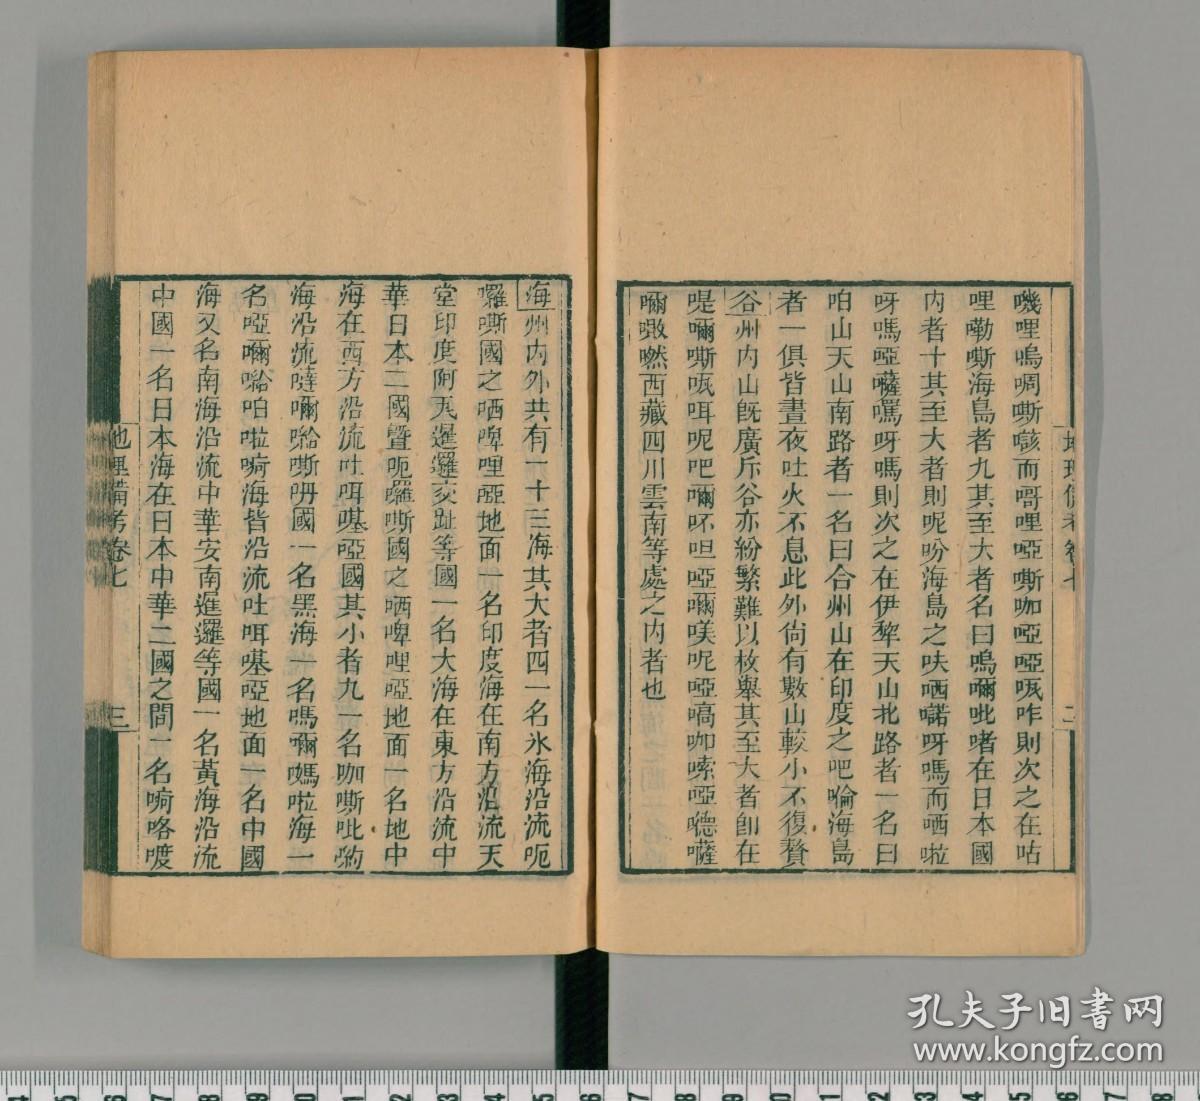 嘰哩嗚啁嘶𠹌而哥哩啞嘶咖啞啞㕵咋則次之在咕
哩嘞嘶海島者九其至大者名曰嗚嘴吡啫在日本國
内者十其至大者則呢吩海島之呋哂諾呀嗎而哂啦
呀嗎啞囉駡呀嗎則次之在伊犂天山北路者一名曰
咱山天山南路者一名曰合州山在印度之吧喻海島
者一俱皆晝夜吐火不息此外尙有數山較小不復贅
谷州内山旣廣斥谷亦紛繁難以枚舉其至大者卽在
嘧西藏四川雲南等處之内者也
地理備考卷七
二
海州内外共有一十三海其大者四一名氷海沿流呃
囉嘶國之哂啤哩啞地面一名印度海在南方沿流天
堂印度阿瓦暹羅交趾等國一名大海在東方沿流中
華日本二國曁呃囉嘶國之哂啤哩啞地面一名地中
海在西方沿流吐咡嘰啞國其小者九一名咖嘶吡喲
海沿流噠嚹嘶㖠國一名黑海一名嗎嘴嗎啦海一
名啞嘴咱啦嗬海皆沿流吐咡嘰啞地面一名中國
海又名南海沿流中華安南暹羅等國一名黃海沿流
中國一名日本海在日本中華二國之間一名嗬咯喥
地理備考卷七
三
孔夫子旧书网
www.kongfz.com